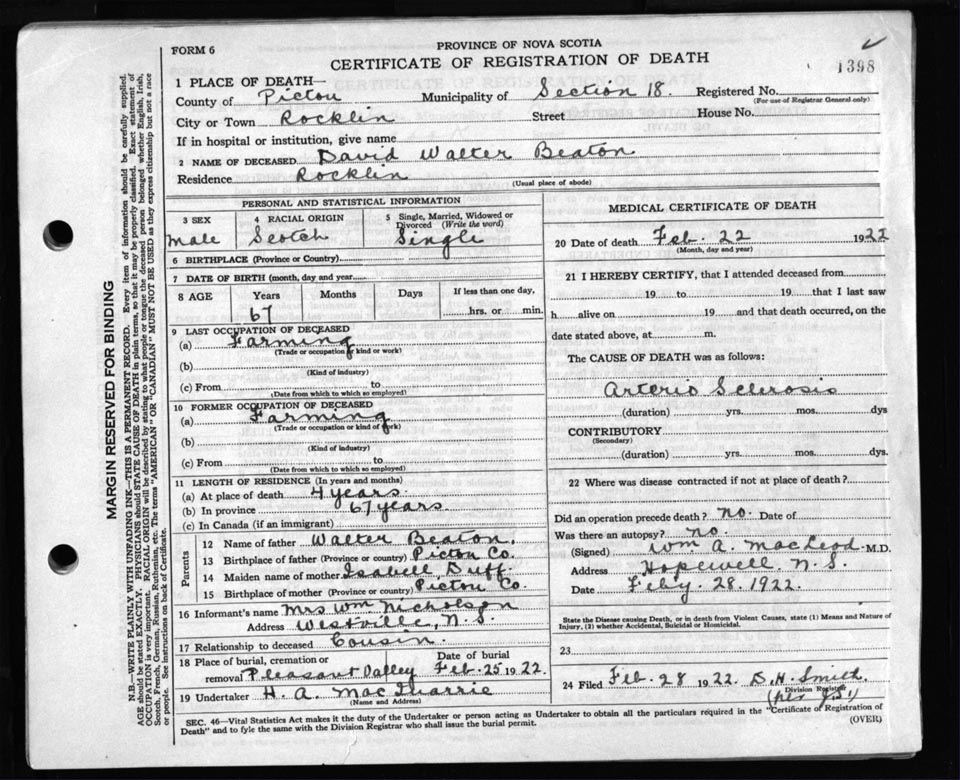 FORM 6
PROVINCE OF NOVA SCOTIA
CERTIFICATE OF REGISTRATION OF DEATH
1398
1 PLACE OF DEATH—
County of Pictou Municipality of Section 18. Registered No.
(For use of Registrar General only)
City or Town Rocklin Street House No.
If in hospital or institution, give name
2 NAME OF DECEASED David Walter Beaton
Residence Rocklin
(Usual place of abode)
PERSONAL AND STATISTICAL INFORMATION
3 SEX 4 RACIAL ORIGIN 5 Single, Married, Widowed or Divorced (Write the word)
male Scotch Single
6 BIRTHPLACE (Province or Country)
7 DATE OF BIRTH (month, day and year)
8 AGE Years Months Days If less than one day,
67 hrs. or min.
9 LAST OCCUPATION OF DECEASED
(a) Farming
(Trade or occupation or kind or work)
(b)
(Kind of industry)
(c) From to
(Date from which to which so employed)
10 FORMER OCCUPATION OF DECEASED
(a) Farming
(Trade or occupation or kind of work)
(b)
(Kind of industry)
(c) From to
(Date from which to which so employed)
11 LENGTH OF RESIDENCE (In years and months)
(a) At place of death 4 years
(b) In province 67 years.
(c) In Canada (if an immigrant)
Parents
12 Name of father Walter Beaton.
13 Birthplace of father (Province or country) Picton Co.
14 Maiden name of mother Isabell Duff.
15 Birthplace of mother (Province or country) Picton Co.
16 Informant's name Mrs Wm. Nicholson
Address Westville, N.S.
17 Relationship to deceased Cousin.
18 Place of burial, cremation or removal Pleasant Valley Date of burial Feb. 25 1922.
19 Undertaker H. A. MacQuarrie
(Name and Address)
MEDICAL CERTIFICATE OF DEATH
20 Date of death Feb. 22 1922
(Month, day and year)
21 I HEREBY CERTIFY, that I attended deceased from
19 to 19 that I last saw
h alive on 19 and that death occurred, on the
date stated above, at m.
The CAUSE OF DEATH was as follows:
Arterio Sclerosis
(duration) yrs. mos. dys
CONTRIBUTORY
(Secondary)
(duration) yrs. mos. dys.
22 Where was disease contracted if not at place of death?
Did an operation precede death? no. Date of
Was there an autopsy? no.
(Signed) Wm A. MacLeod M.D.
Address Hopewell N.S.
Date Feby. 28. 1922.
State the Disease causing Death, or in death from Violent Causes, state (1) Means and Nature of
Injury, (2) whether Accidental, Suicidal or Homicidal.
23
24 Filed Feb. 28 1922. D. H. Smith.
Division Registrar
SEC. 46—Vital Statistics Act makes it the duty of the Undertaker or person acting as Undertaker to obtain all the particulars required in the "Certificate of Registration of
Death" and to fyle the same with the Division Registrar who shall issue the burial permit.
(OVER)
MARGIN RESERVED FOR BINDING
N.B.—WRITE PLAINLY WITH UNFADING INK—THIS IS A PERMANENT RECORD. Every item of information should be carefully supplied.
AGE should be stated EXACTLY. PHYSICIANS should STATE CAUSE OF DEATH in plain terms, so that it may be properly classified. Exact statement of
OCCUPATION is very important. RACIAL ORIGIN will be described by stating to what people or tongue the deceased person belonged whether English, Irish,
Scotch, French, German, Russian, Ruthenian, etc. The terms "AMERICAN" OR "CANADIAN" MUST NOT BE USED as they express citizenship but not a race
or people. See instructions on back of Certificate.